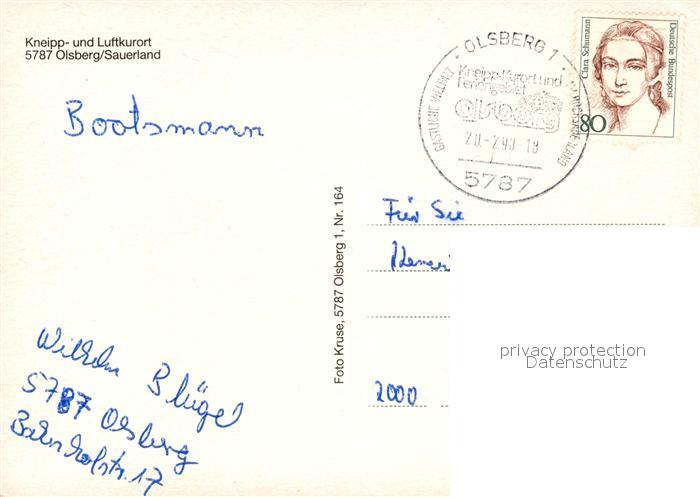 Kneipp- und Luftkurort
5787 Olsberg/Sauerland
Bootsmann
Wilhelm Blügel
5787 Olsberg
Bahnhofstr. 17
Foto Kruse, 5787 Olsberg 1, Nr. 164
OLSBERG 1
GASTLICHE VIELFALT
Kneipp-Kurort und
Feriengebiet
olsberg
20.-2.90-18
5787
Clara Schumann
Deutsche Bundespost
80
Für Sie
2000
privacy protection
Datenschutz